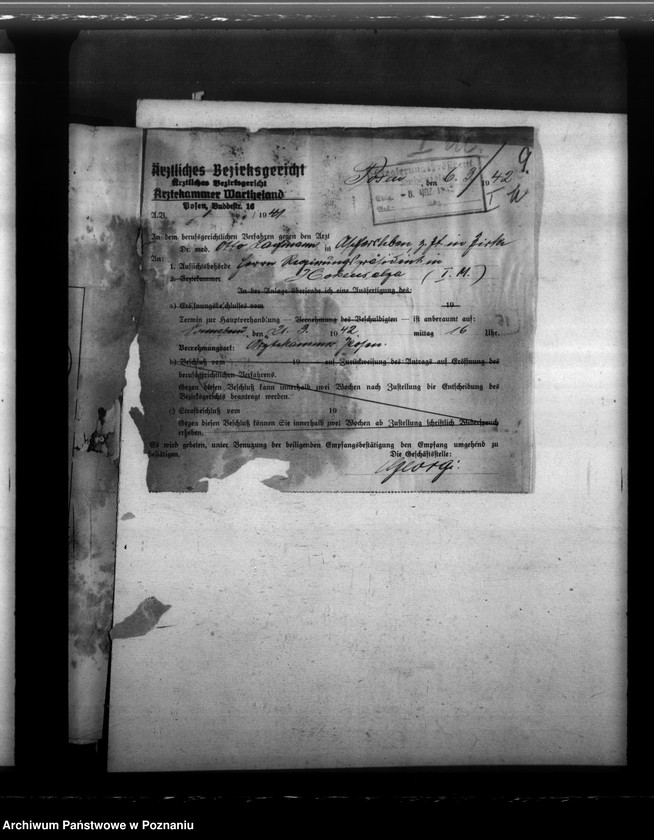 9.
Ärztliches Bezirksgericht
Ärztliches Bezirksgericht
Ärztekammer Wartheland
Posen, Buddestr. 16
Posen, den 6. 3. 1942
A.B. / 1941
In dem berufsgerichtlichen Verfahren gegen den Arzt
Dr. med. Otto in Aschersleben z. Zt. in Zirke
An:
1. Aufsichtsbehörde Herrn Regierungspräsident in
2. Ärztekammer Hohensalza (I. M.)
In der Anlage übersende ich eine Ausfertigung des:
a) Eröffnungsbeschlusses vom 19
Termin zur Hauptverhandlung — Vernehmung des Beschuldigten — ist anberaumt auf:
den 21. 3. 1942 mittag 16 Uhr.
Vernehmungsort: Ärztekammer Posen.
b) Beschluß vom 19 auf Zurückweisung des Antrags auf Eröffnung des
berufsgerichtlichen Verfahrens.
Gegen diesen Beschluß kann innerhalb zwei Wochen nach Zustellung die Entscheidung des
Bezirksgerichts beantragt werden.
c) Strafbeschluß vom 19
Gegen diesen Beschluß können Sie innerhalb zwei Wochen ab Zustellung schriftlich Widerspruch
erheben.
Es wird gebeten, unter Benutzung der beiligenden Empfangsbestätigung den Empfang umgehend zu
bestätigen.
Die Geschäftsstelle:
Georgi
Archiwum Państwowe w Poznaniu